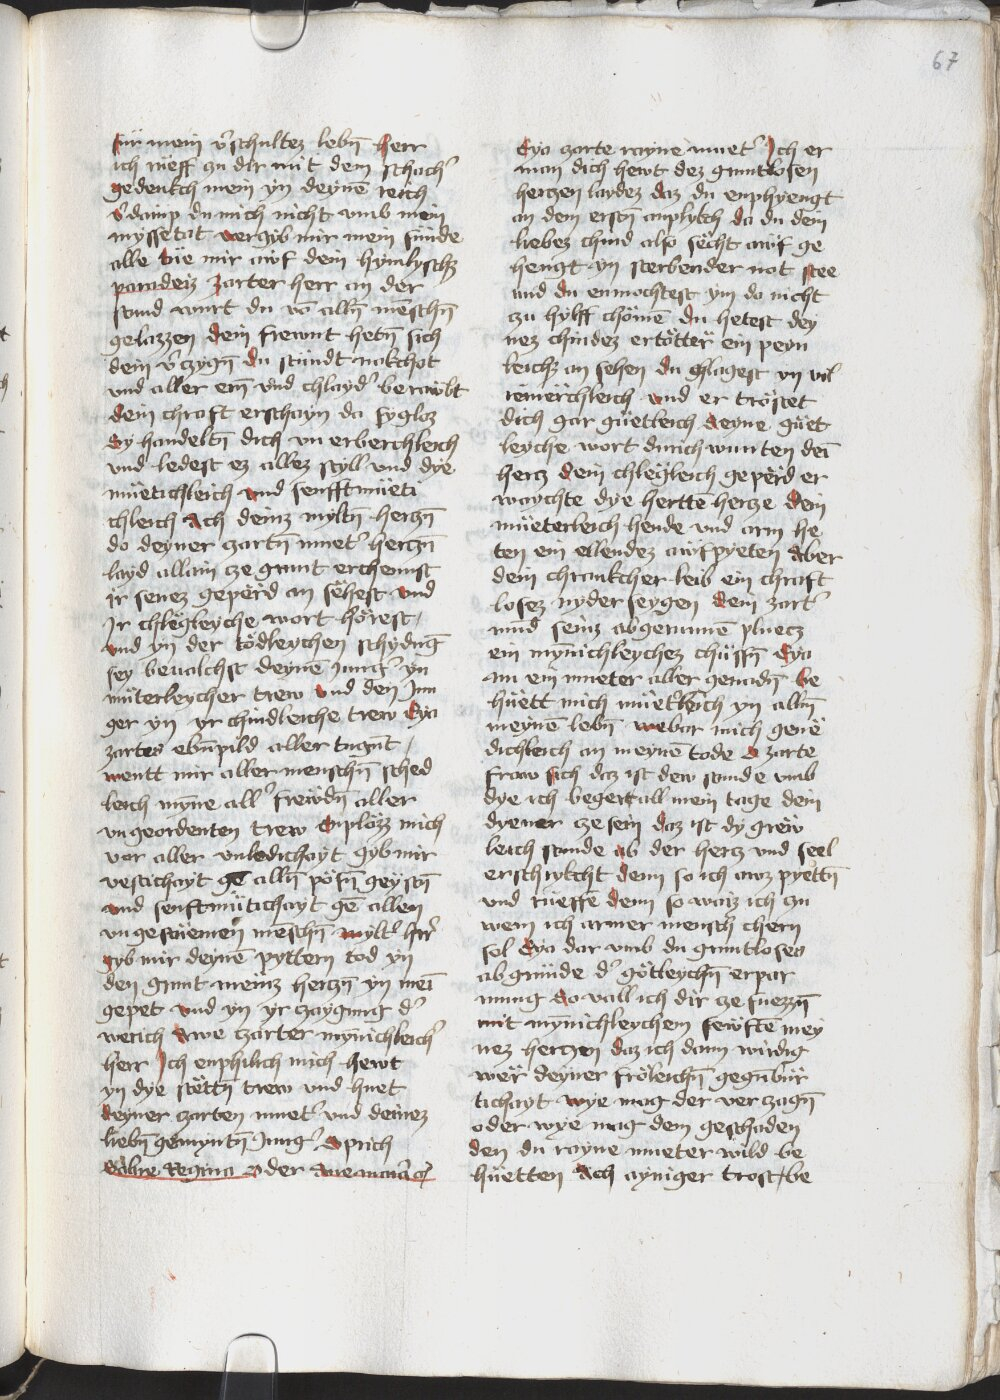 67
für mein v̉schultez lebn̄ herr
ich rüeff zu dir mit dem schach̉
gedenkch mein yn deynē reich
v̉damp du mich nicht vmb mein
myssetat vergib mir mein sünde
alle tüe mir awf dem hymlyschz
paradeiz zarter herr an der
stund wurt du vō alln̄ mēschn̄
gelazzen dein frewnt hetn̄ sich
dein v̉czygn̄ du stündt nakchot
vnd aller ern̄ vnd chlayd̉ berawbt
dein chraft erschayn da sygloz
Sy handeltn̄ dich vn erberchleich
vnd ledest ez allez styll vnd dye
müetichleich vnd senfftmüeti
chleich Ach deinz myltn̄ herczn̄
do deyner zartn̄ muet̉ herczn̄
layd allain cze grunt erchennst
ir senez gepërd an sëhest vnd
Ir chlëgleyche wort hörest /
vnd yn der tödleychen schydūg
sey beualchst deynē Jung̉ yn
müterleycher trew vnd den Jun
ger yn yr chindleiche trew Eya
zartes ebn̄pild aller tugnt /
wentt mir aller menschn̄ sched
leich mȳne all̉ frewdn̄ aller
vngeordenten trew Emplözz mich
vor aller vnledichayt gyb mir
vestichayt gē alln̄ pösn̄ geystn̄
vnd senftmütichayt gē allen
vngestüemen mēschn̄ mylt̉ hr̄
gyb mir deynē pyttern tod yn
den grunt meinz herczn̄ yn mei
gepet vnd yn yr zaygung d̉
werich Awe czarter mȳnichleich̉
herr Ich enphilich mich hewt
yn dye stëttn̄ trew vnd huet
deyner czarten muet̉ vnd deinez
liebn̄ gemyntn̄ Jung̉ Sprich
Salue Regina oder Aue maria g̉
Eya zarte rayne muet̉ Ich er
man dich hewt dez gruntlosen
herczen laydez daz du enphyengt
an dem erstn̄ anplykch da du dein
liebez chind also sëcht awf ge
hengt yn sterbender not stee
vnd du enmochtest ym do nicht
zu hylff chömē du hetest dey
nez chindez ertötter ein peyn
leichz an sehen du chlagest yn vil
iëmerchleich vnd er tröstet
dich gar güetleich deyne güet
leyche wort durich wunten dei
hercz dein chlëgleich gepërd er
waychte dye herttē hercze Dein
müeterleich hende vnd arm he
ten ein ellendez awfpyeten Aber
dein chrankcher leib ein chraft
losez nyder seygen dem zart̉
mund seinz abgerunnē pluecz
ein mȳnichleychez chüssn̄ Eya
nu ein mueter aller genadn̄ be
hüett mich müet̉leich yn alln̄
meynē lebn̄ webar mich genē
dichleich an meynē tode O zarte
fraw sich daz ist dew stunde vmb
dye ich beger all mein tage dein
dyener cze sein daz ist dy grew
leich stunde ab der hercz vnd seel
erschrykcht denn so ich awz pyettn̄
vnd rüeffē denn so waiz ich zu
wem ich armer mensch chern
sol Eya dar vmb du gruntloses
abgründe d̉ götleychn̄ erpar
mung So vall ich dir cze fuezzn̄
mit mȳnichleychem sewftē mey
nez herczen daz ich dann wirdig
wer deyner fröleichn̄ gegn̄bür
tichayt wye mag der verzagn̄
oder wye mag dem geschaden
den du rayne mueter wild be
hüetten Ach ayniger trost / be